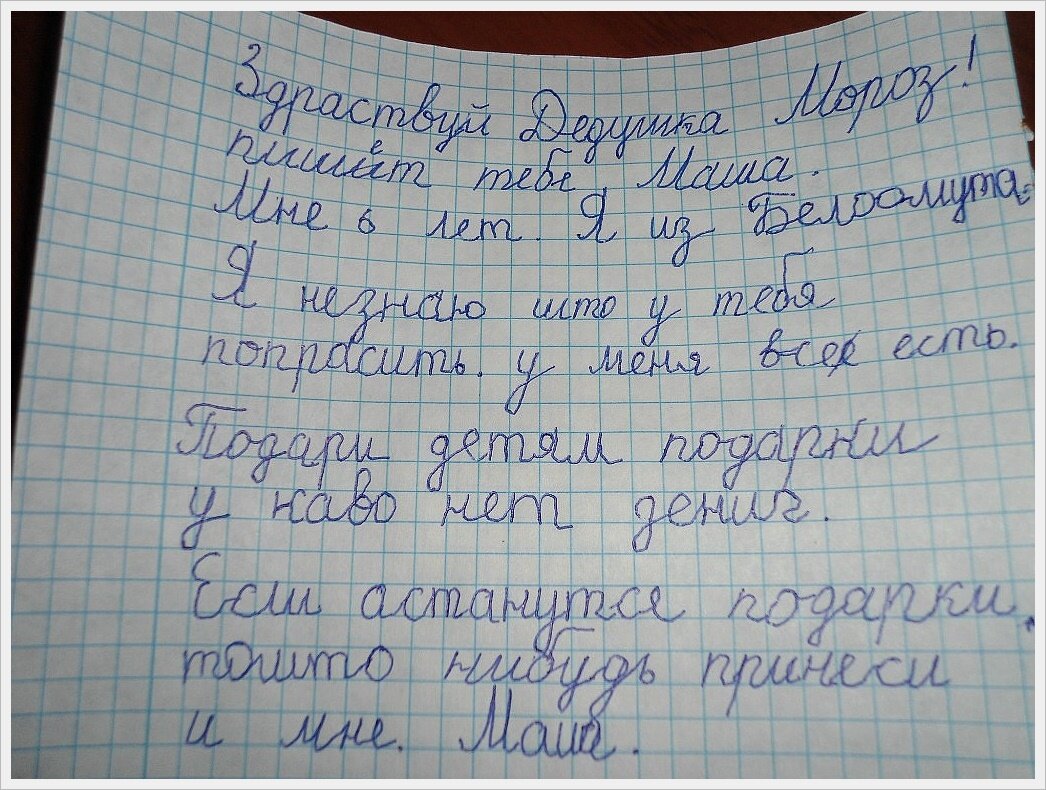 Здраствуй Дедушка Мороз!
пишет тебе Маша.
Мне 6 лет. Я из Белоомута.
Я незнаю што у тебя
попрасить. у меня все есть.
Подари детям подарки
у каво нет дениг.
Если астанутся подарки,
тошто нибудь принеси
и мне. Маша.